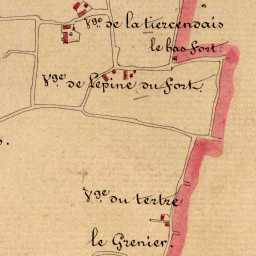 Vge. de la tiercendais
le bas fort.
Vge. de l'epine du fort.
Vge. du tertre
le Grenier.